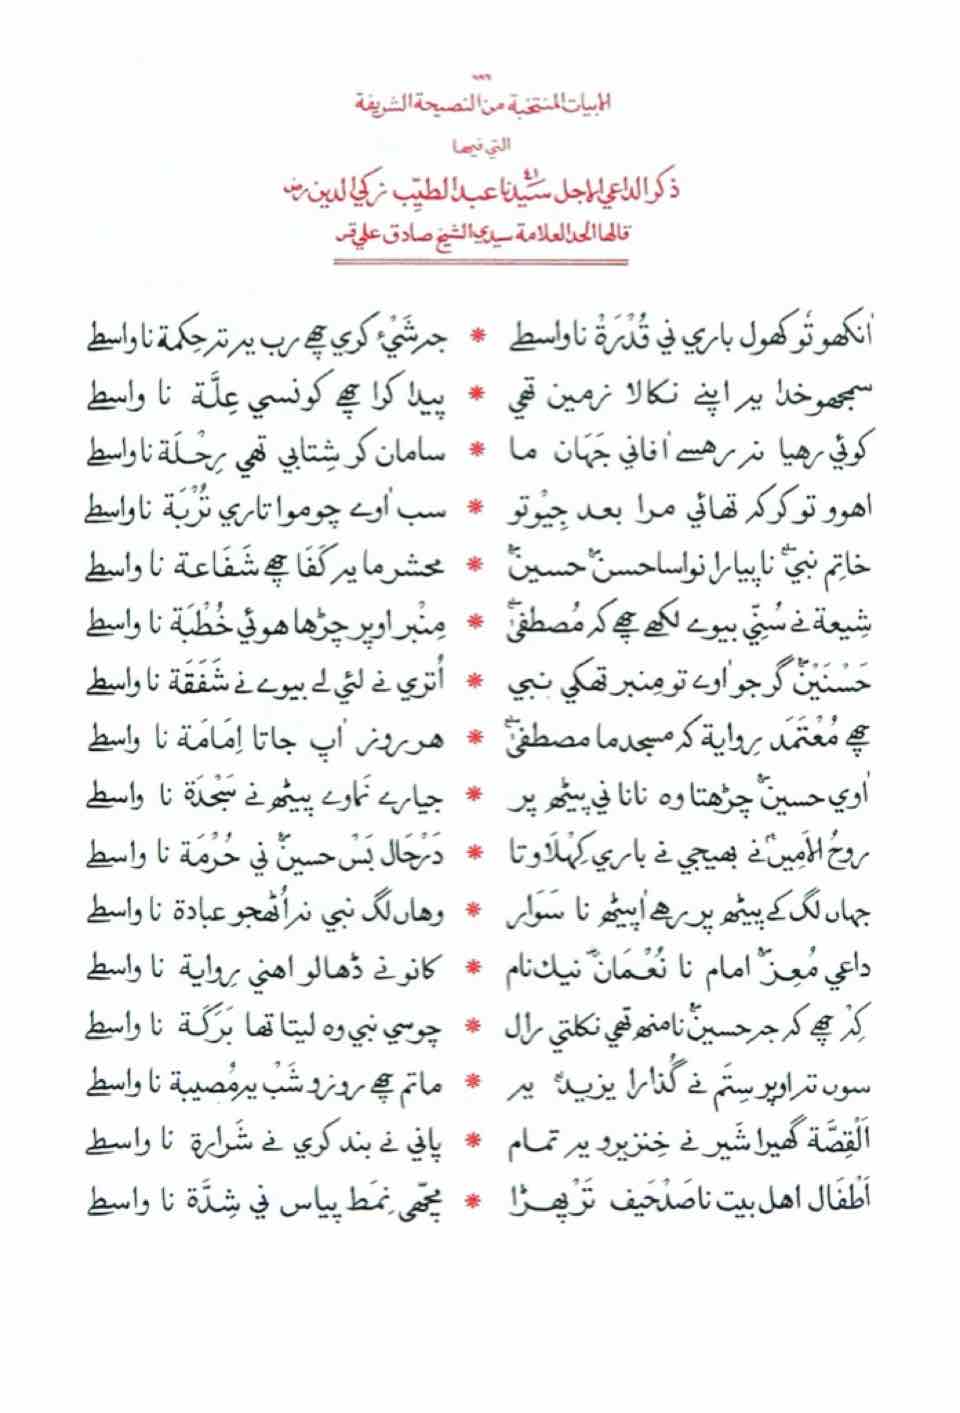 ٧٨٦
الابيات المنتخبة من النصيحة الشريفة
التي فيها
ذكر الداعي الاجل سيدنا عبد الطيّب زكي الدين رض
قالها الحد العلامة سيدي الشيخ صادق علي قس
اٰنكهو تُو كهول باري ني قُدْرَةْ نا واسطے * جه شَيْء كري چھے رب يه ته حِكمة نا واسطے
سمجهو خدا يه اپنے نكالا زمين تهي * پيدا كرا چھے كونسي عِلَّة نا واسطے
كوئي رهيا نه رهسے اٰ فاني جَهَان ما * سامان كر شِتابي تهي رِحْلَة نا واسطے
اهوو تو كر كہ تهائي مرا بعد جِيْوتو * سب اٰوے چوموا تاري تُرْبَة نا واسطے
خاتِم نبيؐ نا پيارا نواسا حسنؑ حسينؑ * محشر ما يه كَفَا چھے شَفَاعة نا واسطے
شِيعة نے سُنِّي بيوے لكھے چھے كہ مُصطفىٰؐ * مِنْبر اوپر چڑها هوئي خُطْبَة نا واسطے
حَسْنَيْنؑ گر جو اٰوے تو مِنبر تهكي نبي * اُتري نے لئي لے بيوے نے شَفَقَة نا واسطے
چھے مُعْتَمَد رِواية كہ مسجد ما مصطفىٰؐ * هر روز اٰپ جاتا اِمَامَة نا واسطے
اٰوي حسينؑ چڑهتا وه نانا ني پيٹھ پر * جيارے نَماوے پيٹھ نے سَجْدَة نا واسطے
روحُ الأمينؑ نے بهيجي نے باري كِهْلَاوتا * دَرْحَال بَسْ حسينؑ ني حُرْمَة نا واسطے
جهاں لگ كے پيٹھ پر رهے اٰ پيٹھ نا سَوَار * وهاں لگ نبي نه اُٹهجو عبادة نا واسطے
داعي مُعِزؑ امام نا نُعْمَانؓ نيك نام * كانو نے ڈهالو اهني رِواية نا واسطے
كِهْ چھے كہ جه حسينؑ نا منھ تهي نكلتي رال * چوسي نبي وه ليتا تها بَرَكَة نا واسطے
سوں ته اوپر سِتَم نے گُذارا يزيدؑ يه * ماتم چھے روز و شَبْ يه مُصيبة نا واسطے
اَلْقِصَّة گهيرا شَير نے خِنزيرو يه تمام * پاني نے بند كري نے شَرارة نا واسطے
اَطْفَال اهل بيت نا صَدْحَيف تڑپهڑا * مچّهي نِمَط پياس ني شِدَّة نا واسطے